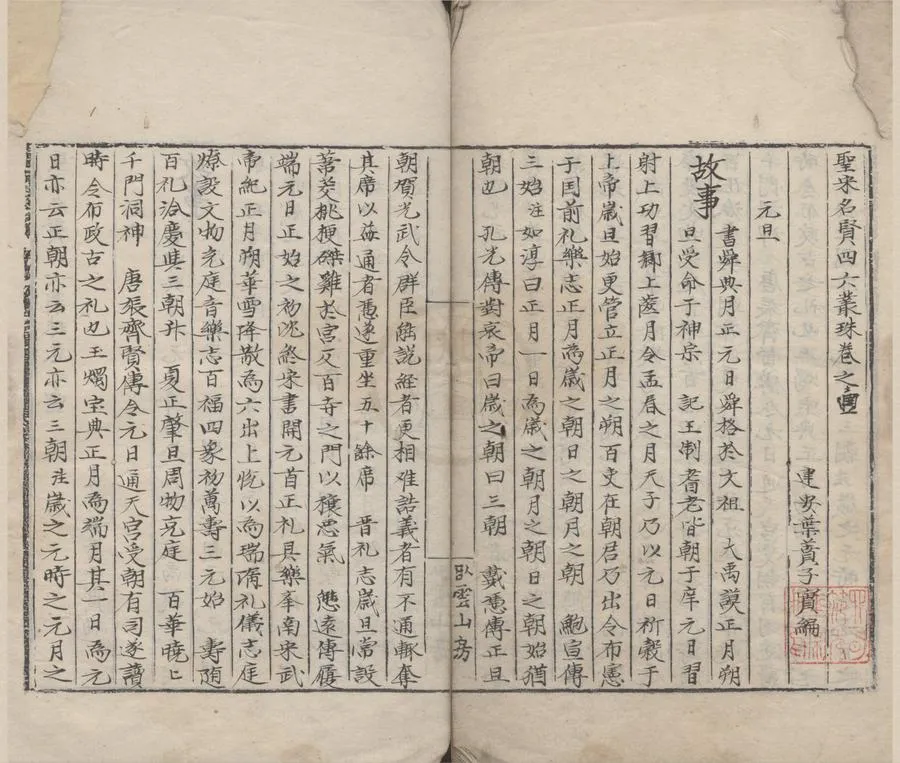 聖宋名賢四六叢珠卷之四
建安葉蕡子實編
元旦
故事
書舜典月正元日舜格於文祖 大禹謨正月朔
旦受命于神宗 記王制耆老皆朝于庠元日習
射上功習鄉上齒月令孟春之月天子乃以元日祈穀于
上帝歲旦始更管立正月之朔百吏在朝君乃出令布憲
于国前礼樂志正月為歲之朝日之朝月之朝 鮑宣傳
三始注如淳曰正月一日為歲之朝月之朝日之朝始猶
朝也 孔光傳對哀帝曰歲之朝曰三朝 戴憑傳正旦
臥雲山房
朝賀光武令群臣能説経者更相难詰義者有不通輒奪
其席以益通者憑遂重坐五十餘席 晋礼志歲旦當設
葦茭桃梗磔雞於宮及百寺之門以禳悪氣 履
端元日正始之初 宋書開元首正礼具樂奉南宋武
帝紀正月朔華雪降散為六出上悦以為瑞隋礼儀志庭
燎設文物充庭音樂志百福四象初萬壽三元始 壽随
百礼洽慶與三朝升 夏正肇旦周物充庭 百華曉亡
千門洞神 唐張齊賢傳令元日通天宮受朝有司遂讀
時令布政古之礼也玉燭宝典正月為端月其一日為元
日亦云正朝亦云三元亦云三朝注歲之元時之元月之